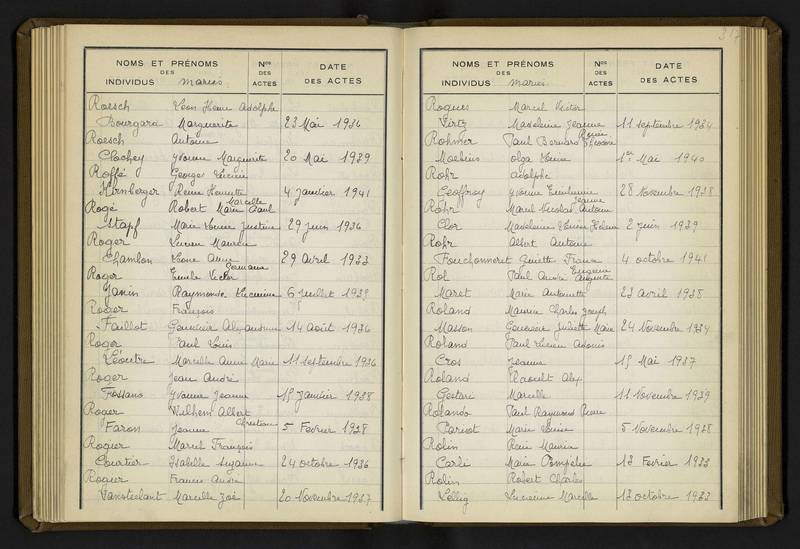 NOMS ET PRÉNOMS
DES
INDIVIDUS mariés
Nos
DES
ACTES
DATE
DES ACTES
Roesch Léon Henri Adolphe
Bourgard Marguerite 23 Mai 1936
Roesch Antoine
Clochey Yvonne Marguerite 20 Mai 1939
Roffé Georges Lucien
Hirnberger Reine Henriette 4 janvier 1941
Marcelle
Rogé Robert Marie Paul
Stapf Marie Louise Justine 29 juin 1936
Roger Lucien Maurice
Chamlon Léone Anna 29 Avril 1933
Germaine
Roger Emile Victor
Janin Raymonde Lucienne 6 juillet 1939
Roger François
Faillot Geneviève Alexandrine 14 Août 1936
Roger Paul Louis
Leoutre Marcelle Anne Marie 11 septembre 1936
Roger Jean André
Fossano Yvonne Jeanne 15 janvier 1938
Roger Wilhem Albert
Christiane
Faron Jeanne 5 Fevrier 1938
Roguer Marcel François
Courtier Isabelle Suzanne 24 octobre 1936
Roguer Francis André
Vansteelant Marcelle Zoé 20 Novembre 1937
317
NOMS ET PRÉNOMS
DES
INDIVIDUS mariés
Nos
DES
ACTES
DATE
DES ACTES
Rogues Marcel Victor
Virtz Madeleine Jeanne 11 septembre 1934
Rohmer Paul Bernard Théodore
Moebius Olga Louise 1er Mai 1940
Rohr Adolphe
Geoffroy Yvonne 28 Novembre 1938
Rohr Marcel Nicolas Antoine
Clor Madeleine Louise Hélène 2 juin 1939
Rohr Albert Antoine
Bouchonneret Ginette France 4 octobre 1941
Eugène
Rol Paul André Auguste
Maret Marie Antoinette 23 avril 1938
Roland Maurice Charles Joseph
Masson Geneviève Juliette Marie 24 Novembre 1934
Roland Paul Lucien Adonis
Cros Jeanne 15 Mai 1937
Roland Raoult Alex
Marcelle 11 Novembre 1939
Rolando Paul Raymond Pierre
Pariset Marie Louise 5 Novembre 1938
Rolin René Maurice
Carli Marie Pompilia 18 Février 1933
Rolin Robert Charles
Lellig Lucienne Marcelle 18 octobre 1933